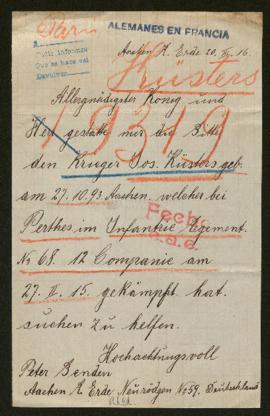 París
ALEMANES EN FRANCIA
A
Pedir informes
Que se hace así
Devolver
Aachen R. Erde 20. XI. 16.
Küsters
Allergnädigster König und
Herr gestatte mir die Bitte
49319
den Krieger Jos. Küsters geb.
am 27.10.93 Aachen, welcher bei
Perthes im Infantrie Regiment.
Fecha
No 68. 12 Companie am
27. II. 15. gekämpft hat.
suchen zu helfen.
Hochachtungsvoll
Peter Benden
Aachen R. Erde Neurödgen No 59, Deutschland